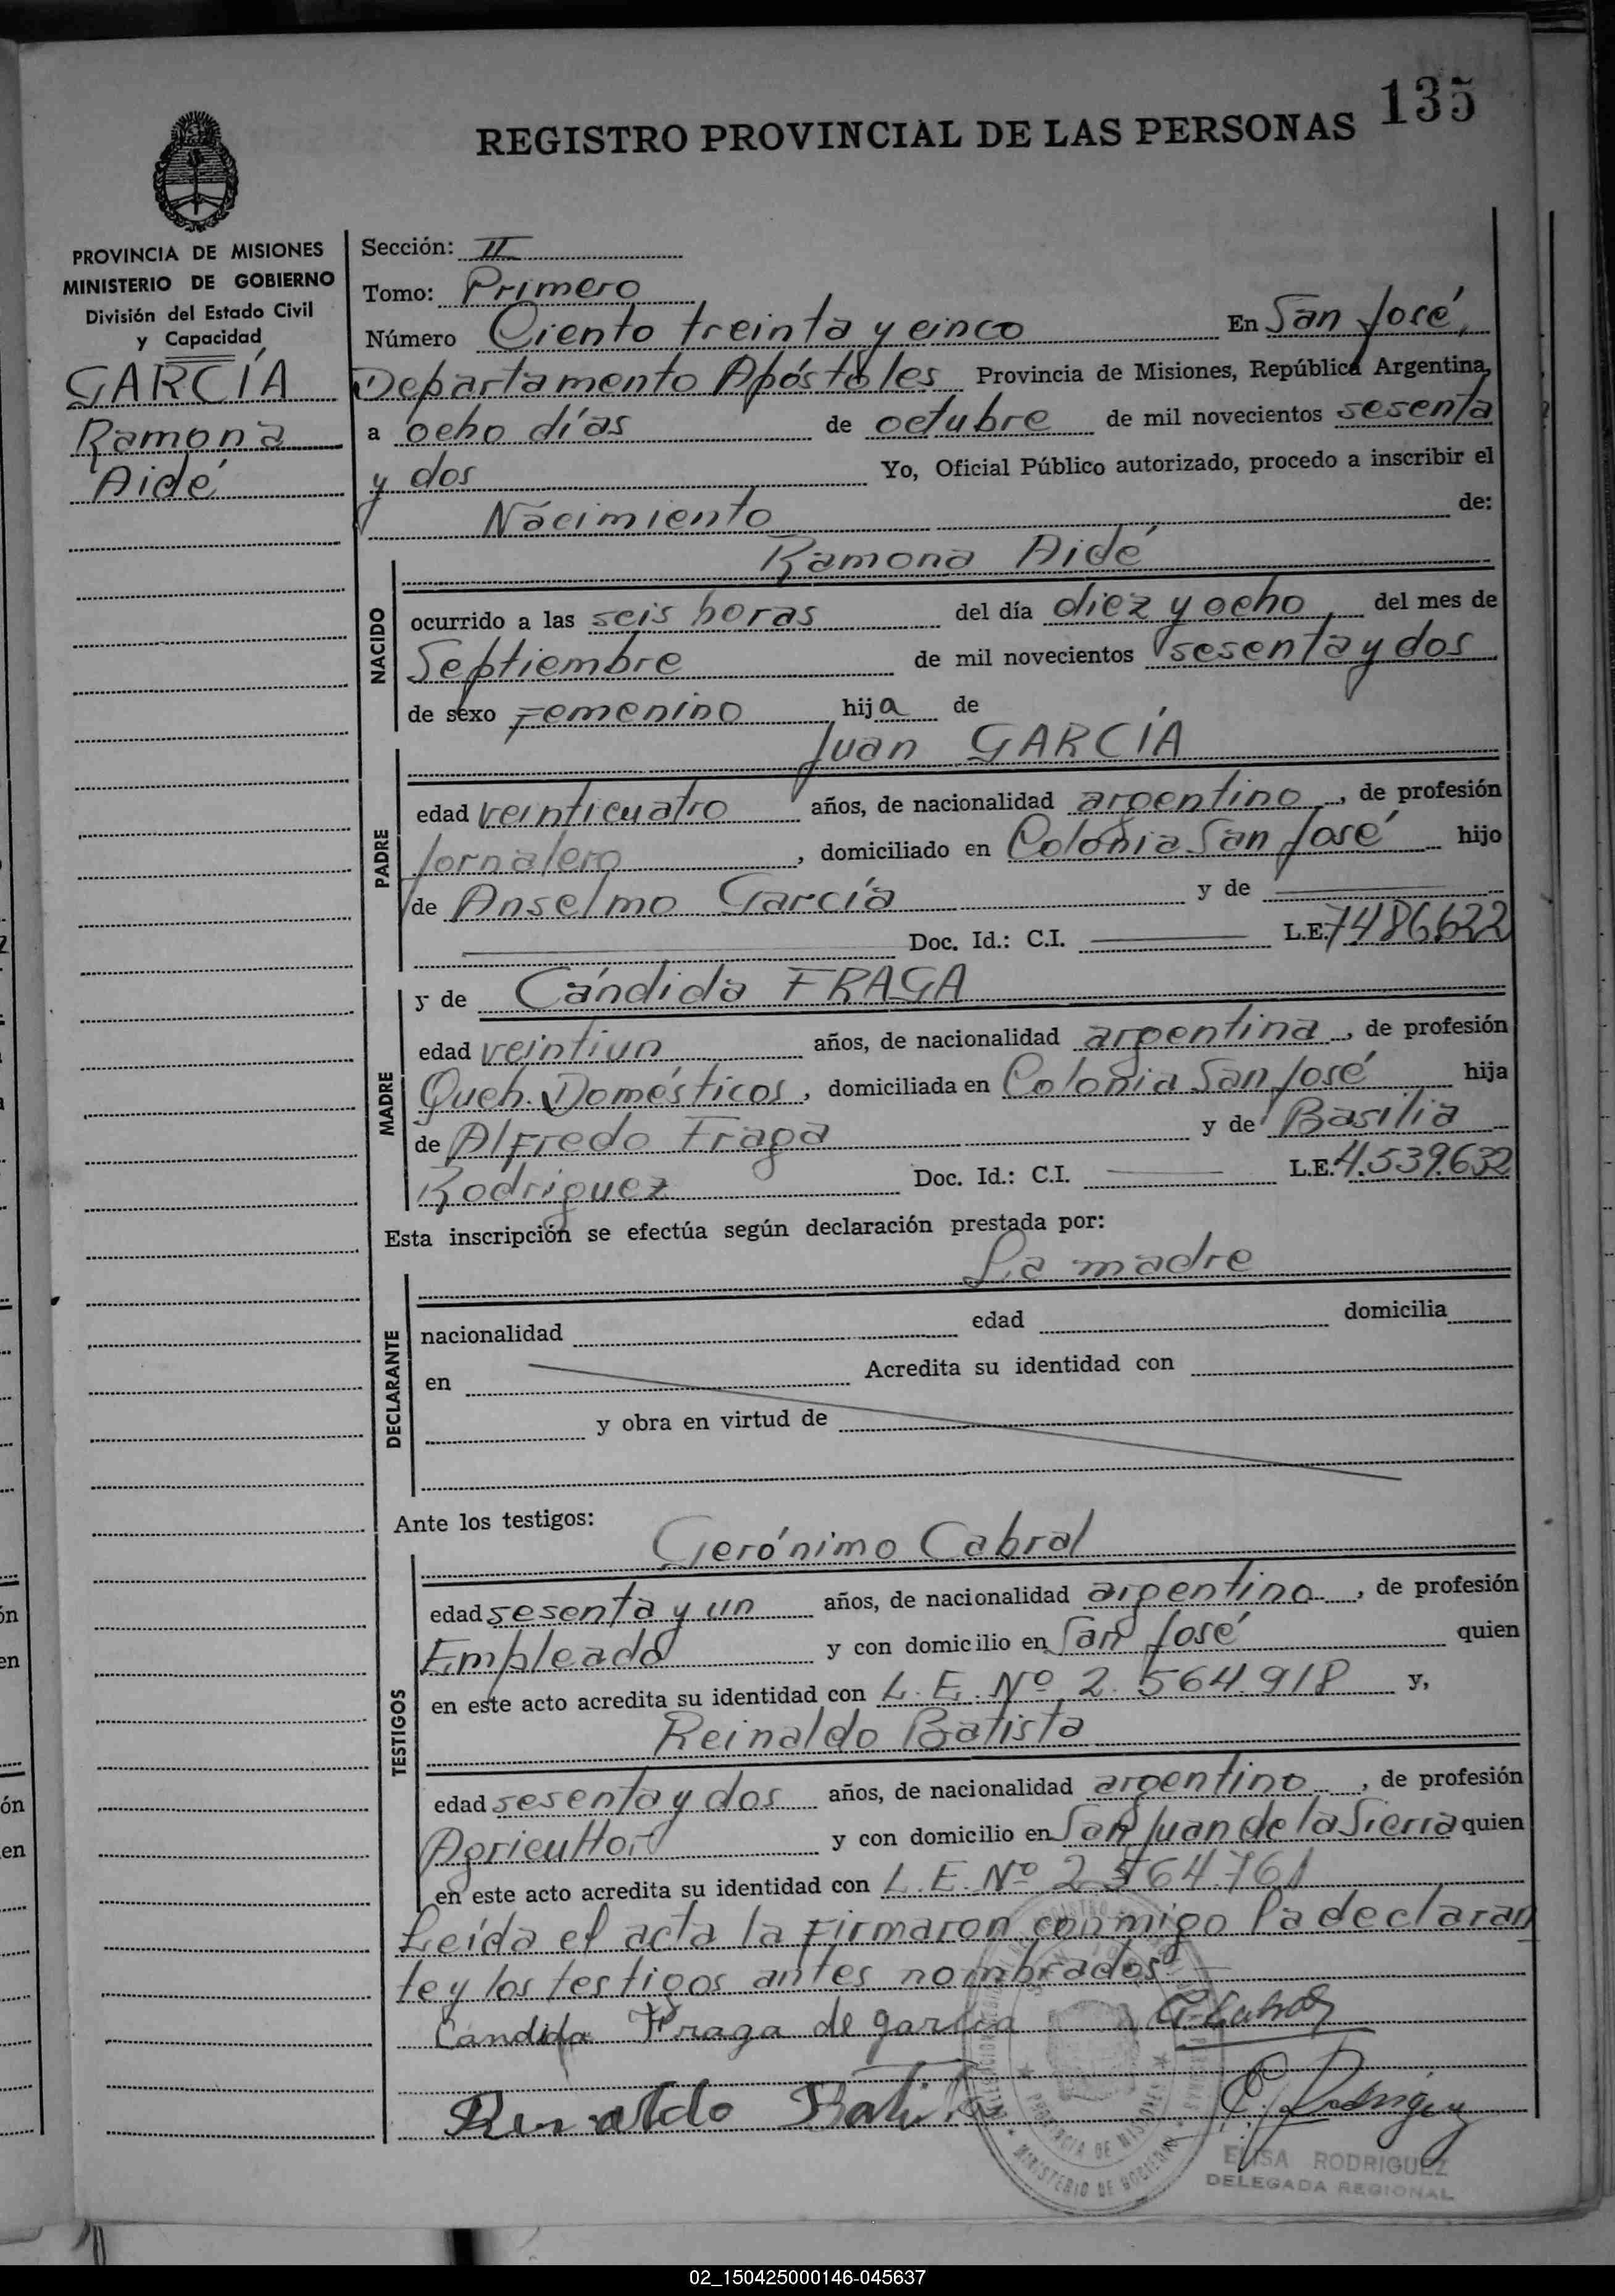 135
REGISTRO PROVINCIAL DE LAS PERSONAS
PROVINCIA DE MISIONES
MINISTERIO DE GOBIERNO
División del Estado Civil
y Capacidad
GARCÍA
Ramona
Aidé
Sección: II
Tomo: Primero
Número Ciento treinta y cinco En San José,
Departamento Apóstoles Provincia de Misiones, República Argentina,
a ocho días de octubre de mil novecientos sesenta
y dos Yo, Oficial Público autorizado, procedo a inscribir el
Nacimiento de:
Ramona Aidé
NACIDO
ocurrido a las seis horas del día diez y ocho, del mes de
Septiembre de mil novecientos sesenta y dos
de sexo Femenino hija de
Juan GARCÍA
PADRE
edad veinticuatro años, de nacionalidad argentino, de profesión
Jornalero, domiciliado en Colonia San José hijo
de Anselmo García y de
Doc. Id.: C.I. L.E. 7486622
MADRE
y de Cándida FRAGA
edad veintiun años, de nacionalidad argentina, de profesión
Queh. Domésticos, domiciliada en Colonia San José hija
de Alfredo Fraga y de Basilia
Rodriguez Doc. Id.: C.I. L.E. 4.539.632
Esta inscripción se efectúa según declaración prestada por:
La madre
DECLARANTE
nacionalidad edad domicilia
en Acredita su identidad con
y obra en virtud de
Ante los testigos:
Gerónimo Cabral
TESTIGOS
edad sesenta y un años, de nacionalidad argentino, de profesión
Empleado y con domicilio en San José quien
en este acto acredita su identidad con L.E. Nº 2.564.918 y,
Reinaldo Batista
edad sesenta y dos años, de nacionalidad argentino, de profesión
Agricultor y con domicilio en San Juan de la Sierra quien
en este acto acredita su identidad con L.E. Nº 2.564.761
Leída el acta la firmaron conmigo la declaran
te y los testigos antes nombrados
Candida Fraga de garcia G. Cabral
Reinaldo Batista E. Rodriguez
PROVINCIA DE MISIONES
MINISTERIO DE GOBIERNO
ELISA RODRIGUEZ
DELEGADA REGIONAL
02_150425000146-045637